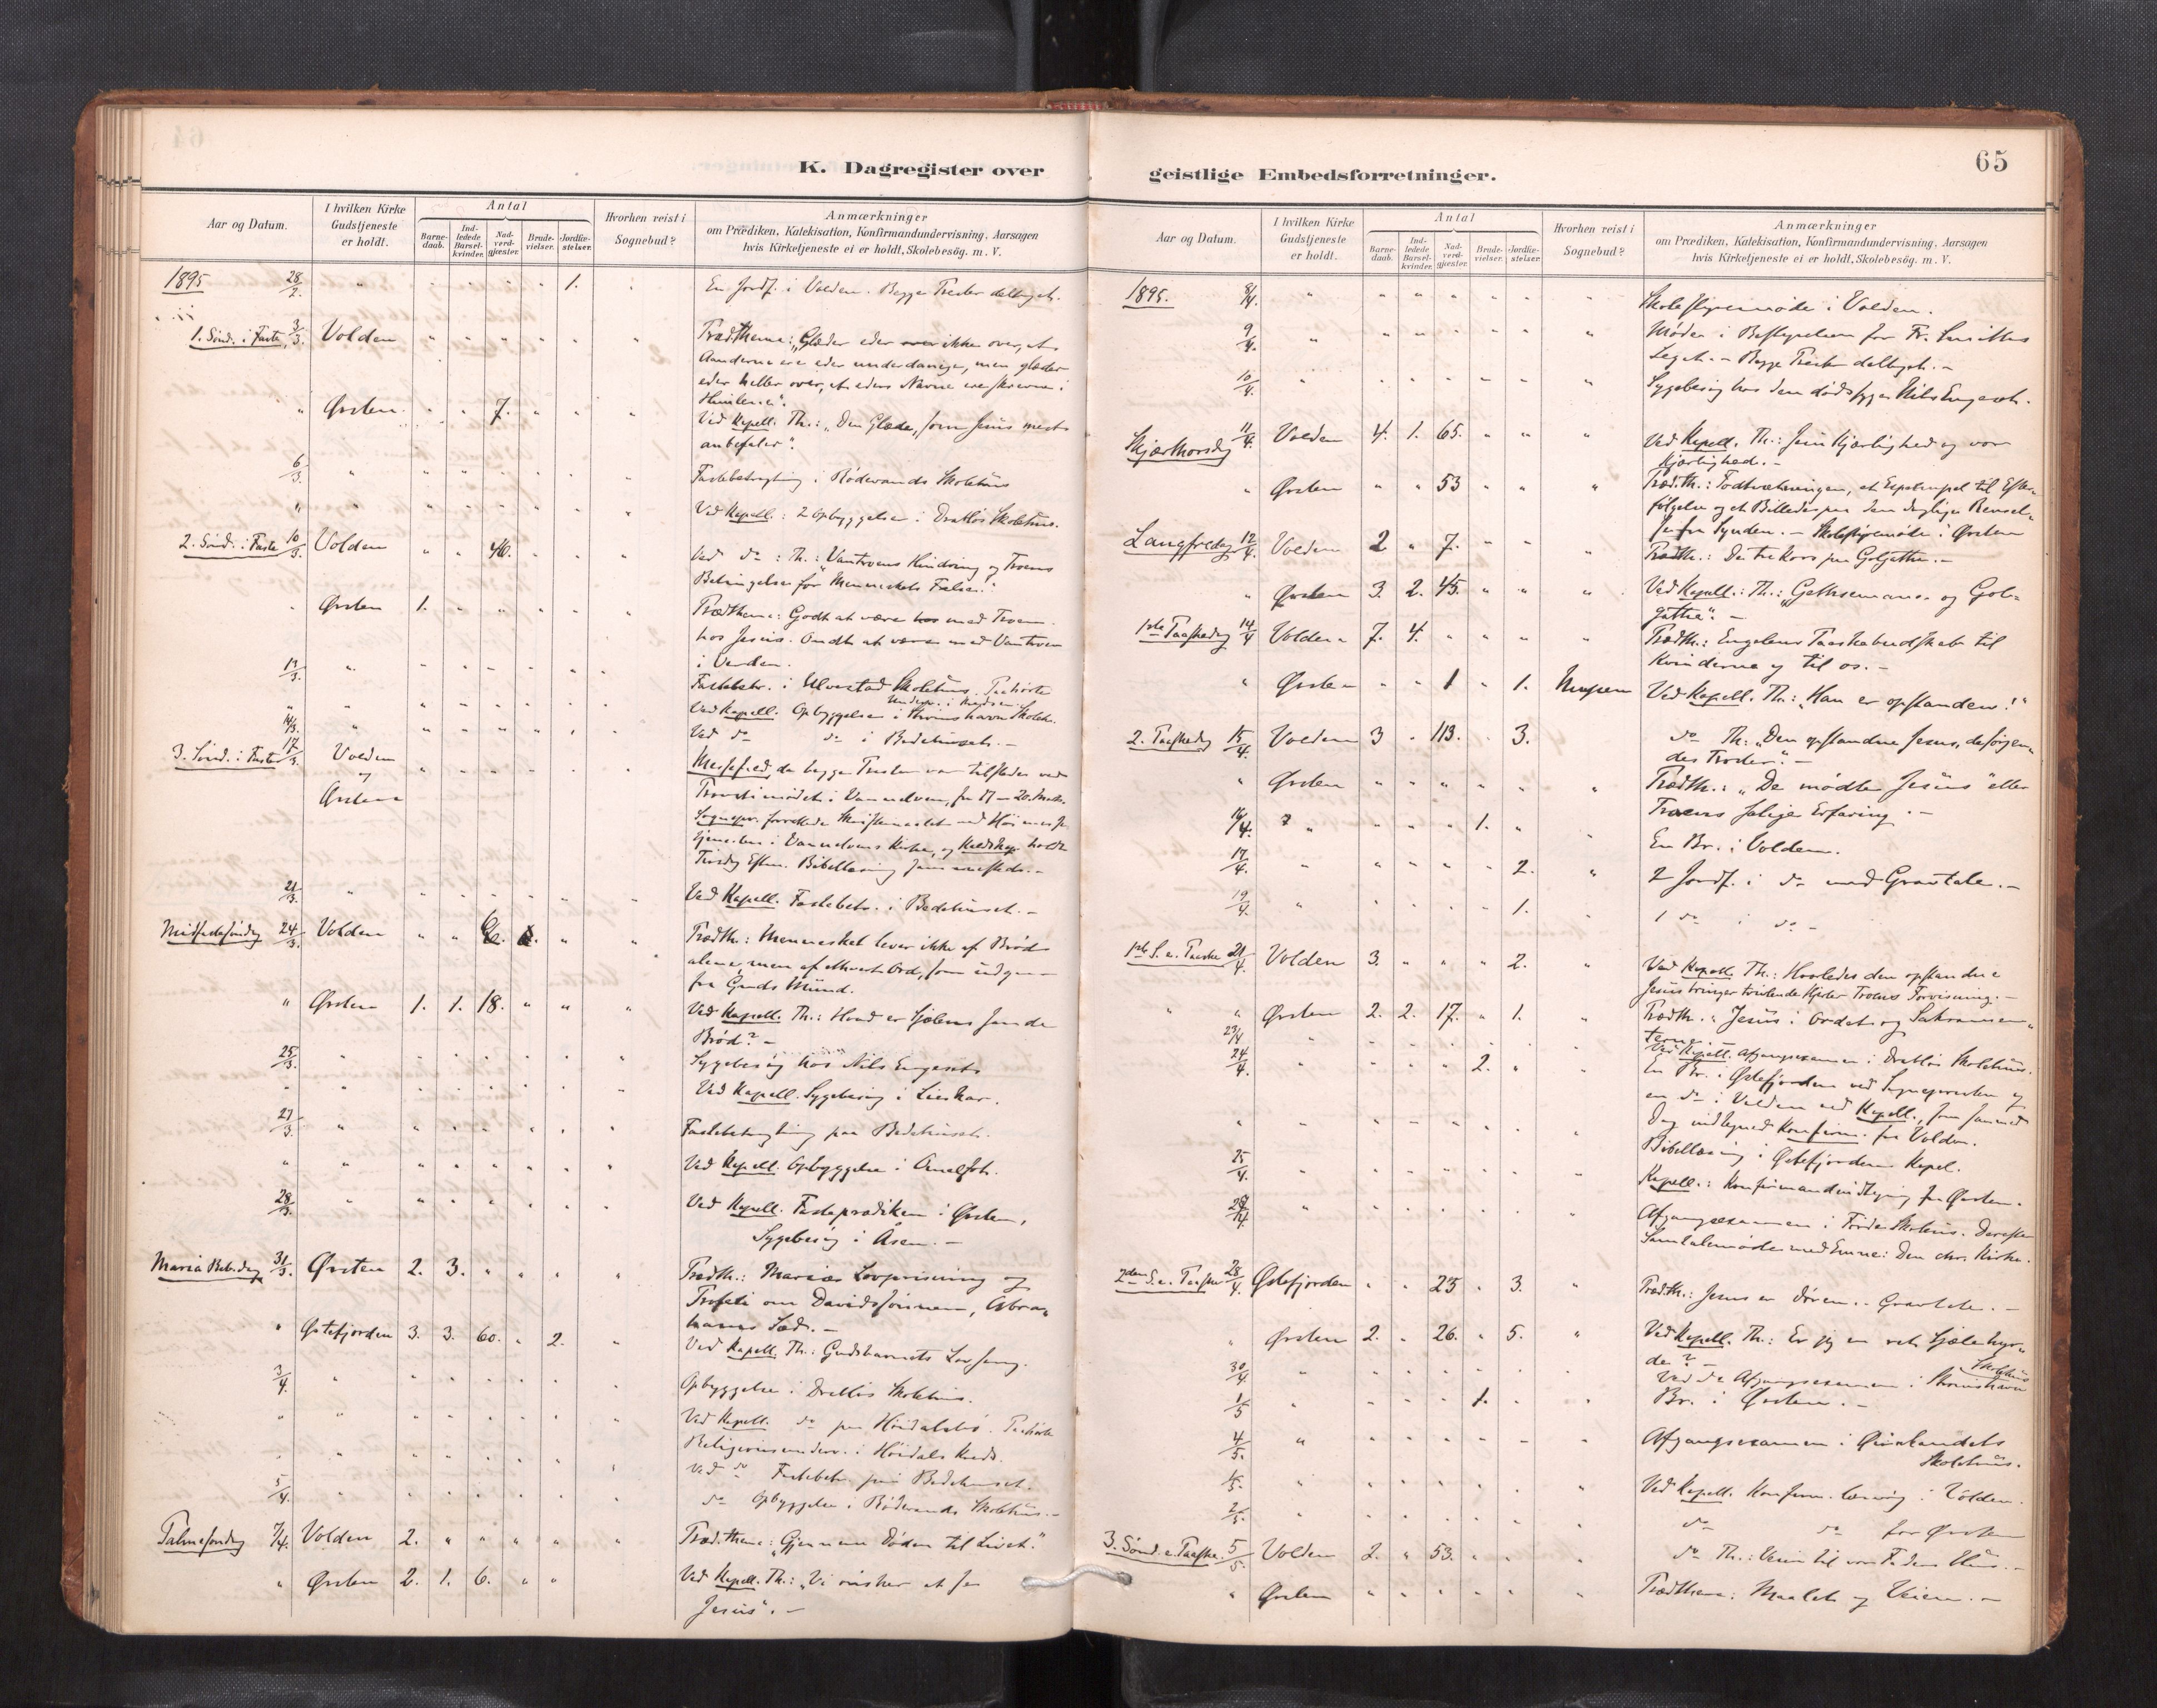 K. Dagregister over
Aar og Datum.
I hvilken Kirke Gudstjeneste er holdt.
Antal
Barne-daab.
Ind-ledede Barsel-kvinder.
Nad-verd-gjester.
Brude-vielser.
Jordfæ-stelser.
Hvorhen reist i Sognebud?
Anmærkninger
om Prædiken, Katekisation, Konfirmandundervisning, Aarsagen
hvis Kirketjeneste ei er holdt, Skolebesög. m. V.
1895 28/2. " " " " " 1. En Jordf. i Volden. Begge Prester deltoget.
1. Sönd. i Faste, 3/3. Volden " " " " " " Prædthema: "Glæder eder ikke over, at
Aanderne ere eder underdanige, men glæder
eder heller over, at eders Navne ere skrevne i
Himlene".
" Ørsten " " 7. " " " Ved Kapell. Th.: "Den Glæde, som Jesus mest
anbefaler".
6/3. " Fastebetragtning i Rödevands Skolehus
" " Ved Kapell.: 2 Opbyggelser i Dratlös Skolehus.
2. Sönd. i Faste 10/3. Volden " " 46. " " " Ved do : Th.: "Vantroens Hindring og Troens
Betingelser for Menneskets Frelse."
" Ørsten 1. " " " " " Prædthema: Godt at være med Troen
hos Jesus. Ondt at være med Vantroen
i Verden.
13/3. " Fastebetr. i Ulvestad Skolehus.
" " Ved Kapell. Opbyggelse i Skolehs.
14/3. " Ved do do i Bedehuset.
3. Sönd. i Faste 17/3. Volden
og
Ørsten
Messefald, da begge Prester var tilstede ved
i Vanelven, fra 17–20. Marts.
i Vanelvens Kirke, og holdt
Tirsdag Efterm. Bibellæsning sammesteds.
21/3. " Ved Kapell. Fastebetr. i Bedehuset.
Midfastesöndag 24/3. Volden " " " " Prædth.: Mennesket lever ikke af Bröd
alene, men af ethvert Ord, som udgaar
fra Guds Mund.
" Ørsten 1. 1. 18. " " " Ved Kapell. Th.: Hvad er Sjælens sande
Bröd?
25/3. " Sygebesög hos Nils Engeset
" Ved Kapell. Sygebesög i Lieskar.
27/3. " Fastebetragtning paa Bedehuset.
" " Ved Kapell. Opbyggelse i
28/3. " Ved Kapell. Fasteprædiken i Ørsten,
Sygebesög i Åsen.
Mariä Beb.dag 31/3. Ørsten 2. 3. " " " " Prædth.: Marias Lovprisning og
Profeti om Davidssönnen, Abra-
hams Sæd.
" Østefjorden 3. 3. 60. " 2. " Ved Kapell. Th.: Gudsbarnets Lovsang.
3/4. " Opbyggelse i Dratlös Skolehus.
" " Ved Kapell. do paa
Religionsunderv. i Höidals Kreds.
" Ved do Fastebetr. paa Bedehuset.
5/4. " do Opbyggelse i Rödevands Skolehus.
Palmesöndag 7/4. Volden 2. " " " " Præd.thema: "Gjennem Döden til Livet."
" Ørsten 2. 1. 6. " " Ved Kapell. Th.: "Vi önsker at se
Jesus".
geistlige Embedsforretninger.
65
Aar og Datum.
I hvilken Kirke Gudstjeneste er holdt.
Antal
Barne-daab.
Ind-ledede Barsel-kvinder.
Nad-verd-gjester.
Brude-vielser.
Jordfæ-stelser.
Hvorhen reist i Sognebud?
Anmærkninger
om Prædiken, Katekisation, Konfirmandundervisning, Aarsagen
hvis Kirketjeneste ei er holdt, Skolebesög. m. V.
1895. 8/4. " Skolestyremöde i Volden.
9/4. " Möde i Bestyrelsen for Fr.
Legat. Begge Prester deltoget.
10/4. " Sygebesög hos den dödssyge Nils Engeset.
Skjærthorsdag 11/4. Volden 4. 1. 65. " " " Ved Kapell. Th.: Jesu Kjærlighed og vor
Kjærlighed.
" Ørsten " " 53 " " " Præd.th.: Fodtvætningen, et Exempel til Efter-
fölgelse og et Billede paa den daglige Renselse
fra Synden. Skolestyremöde i Ørsten
Langfredag 12/4. Volden 2 " 7. " " " Prædth.: De tre Kors paa Golgatha.
" Ørsten 3. 2. 45. " " " Ved Kapell.: Th.: "Gethsemane og Gol-
gatha".
1ste Paaskedag 14/4 Volden 7. 4. " " " " Prædth.: Engelens Paaskebudskab til
Kvinderne og til os.
" Ørsten " " 1 " 1. Ved Kapell. Th.: "Han er opstanden!"
2. Paaskedag 15/4. Volden 3 " 113. " 3. do Th.: "Den opstandne Jesus, de sörgen-
des Tröster".
" Ørsten " " " " " " Prædth.: "De mödte Jesus" eller
Troens salige Erfaring.
16/4. " " " " 1. " En Br. i Volden.
17/4. " " " " " 2. " 2 Jordf. i do med Gravtale.
19/4. " " " " " 1. 1 do i do
1ste S. e. Paaske 21/4. Volden 3. " " " 2. " Ved Kapell. Th.: Hvorledes den opstandne
Jesus bringer tvivlende Hjerter Troens Forvisning.
" " Ørsten 2. 2. 17. " 1. " Prædth.: Jesus i Ordet og Sakramen-
terne.
23/4 Ved Kapell. Afgangsexamen i Dratlös Skolehus.
24/4. " " " " 2. " En Br. i Østefjorden ved Sognepresten og
en do i Volden ved Kapell., som samme
Dag indtegnede Konfirm. fra Volden.
" Bibellæsning i Østefjordens Kapel.
25/4. " Kapell.: Konfirmandindtegning fra Ørsten.
Afgangsexamen i Skolehus. Derefter
Samtalemöde med Emne: Den chr. Kirke.
2den S. e. Paaske 28/4. Østefjorden " " 25 " 3. " Prædth.: Jesus er Dören. Gravtale.
" Ørsten 2. " 26. " 5. " Ved Kapell. Th.: Er jeg en ret Sjælehyr-
de?
30/4. " Ved do Afgangsexamen i Skolehus
1/5 " " " " 1. " Br. i Ørsten.
4/5. " Afgangsexamen i
Skolehus.
1/5. " Ved Kapell. Konfirm. læsning i Volden.
2/5. " do do for Ørsten
3. Sönd. e. Paaske. 5/5. Volden 2. " 53. " " do Th.: Veien til vor Faders Hus.
" Ørsten " " " " " " Prædthema: Maalet og Veien.